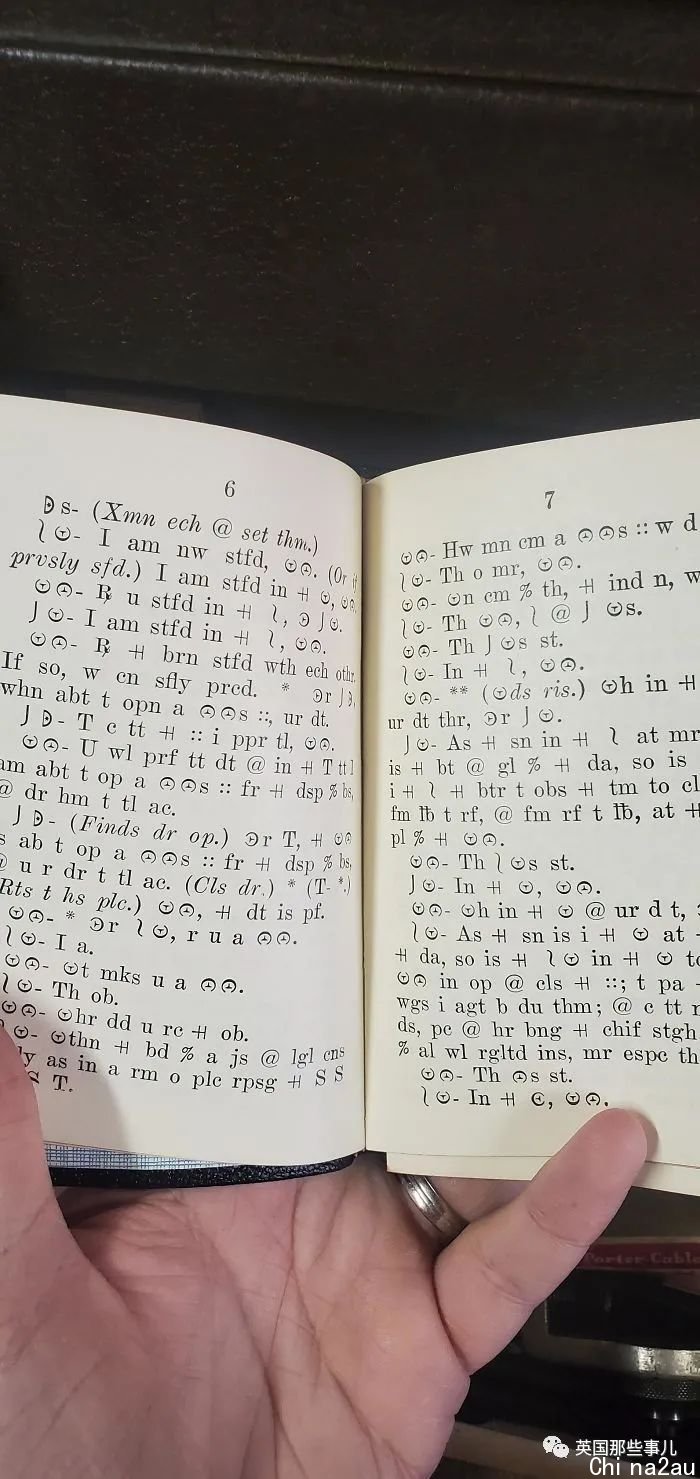 6
𝈖s- (Xmn ech @ set thm.)
⌉ ☉- I am nw stfd, ☉☉. (Or if
prvsly sfd.) I am stfd in ⌗ ☉, ☉☉.
☉☉- ℞ u stfd in ⌗ ⌉, ☽ ⌡☉.
⌡ ☉- I am stfd in ⌗ ⌉, ☉☉.
☉☉- ℞ ⌗ brn stfd wth ech othr.
If so, w cn sfly prcd. * ☽r ⌡☽,
whn abt t opn a ☉☉s ::, ur dt.
⌡ ☽- T c tt ⌗ :: i ppr tl, ☉☉.
☉☉- U wl prf tt dt @ in ⌗ T tt I
am abt t op a ☉☉s :: fr ⌗ dsp % bs,
@ dr hm t tl ac.
⌡ ☽- (Finds dr op.) ☽r T, ⌗ ☉☉
s ab t op a ☉☉s :: fr ⌗ dsp % bs,
@ u r dr t tl ac. (Cls dr.) * (T- *.)
Rts t hs plc.) ☉☉, ⌗ dt is pf.
☉☉- * ☽r ⌉☉, r u a ☉☉.
⌉☉- I a.
☉☉- ☉t mks u a ☉☉.
⌉☉- Th ob.
☉☉- ☉hr dd u rc ⌗ ob.
⌉☉- ☉thn ⌗ bd % a js @ lgl cns
ly as in a rm o plc rpsg ⌗ S S
S T.
7
☉☉- Hw mn cm a ☉☉s :: w d
⌉☉- Th o mr, ☉☉.
☉☉- ☉n cm % th, ⌗ ind n, w
⌉☉- Th ☉☉, ⌉ @ ⌡ ☉s.
☉☉- Th ⌡ ☉s st.
⌉☉- In ⌗ ⌉, ☉☉.
☉☉- ** (☉ds ris.) ☉h in ⌗
ur dt thr, ☽r ⌡ ☉.
⌡☉- As ⌗ sn in ⌗ ⌉ at mr
is ⌗ bt @ gl % ⌗ da, so is
i ⌗ ⌉ ⌗ btr t obs ⌗ tm to cl
fm ℔ t rf, @ fm rf t ℔, at ⌗
pl % ⌗ ☉☉.
☉☉- Th ⌉☉s st.
⌡☉- In ⌗ ☉, ☉☉.
☉☉- ☉h in ⌗ ☉ @ ur d t,
⌉☉- As ⌗ sn is i ⌗ ☉ at
⌗ da, so is ⌗ ⌉☉ in ⌗ ☉ to
☉☉ in op @ cls ⌗ ::; t pa
wgs i agt b du thm; @ c tt n
ds, pc @ hr bng ⌗ chif stgh
% al wl rgltd ins, mr espc th
☉☉- Th ☉s st.
⌉☉- In ⌗ ☾, ☉☉.
Porter-Cable
英国那些事儿
China2au